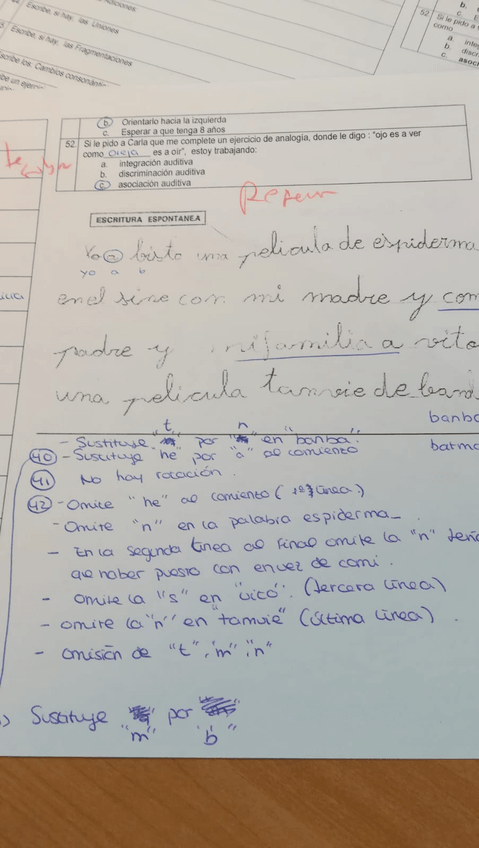 Escribe, si hay, las Uniones
Escribe, si hay, las Fragmentaciones
52
Si le pido a
como
a. inte
b. discr
c. asoc
b. Orientarlo hacia la izquierda
c. Esperar a que tenga 8 años
52 Si le pido a Carla que me complete un ejercicio de analogía, donde le digo : "ojo es a ver
como oreja es a oír", estoy trabajando:
a. integración auditiva
b. discriminación auditiva
c. asociación auditiva
ESCRITURA ESPONTANEA
Yo a bisto una pelicula de espiderma
yo a b
en el sine con mi madre y com
padre y mifamilia a vito
una pelicula tamvie de band
banba
batma
"t" "n"
- Sustituye por en "banba".
40 - Sustituye "he" por "a" al comienzo
41 No hay rotación.
42 - Omite "he" al comienzo (1ª línea)
- Omite "n" en la palabra espiderma_
- En la segunda línea al final omite la "n" tení
que haber puesto con en vez de comi.
- omite la "s" en "vito". (tercera línea)
- omite la "n" en "tamvie" (última línea).
- omisión de "t", "m", "n"
) Sustituye por
"m" "b"